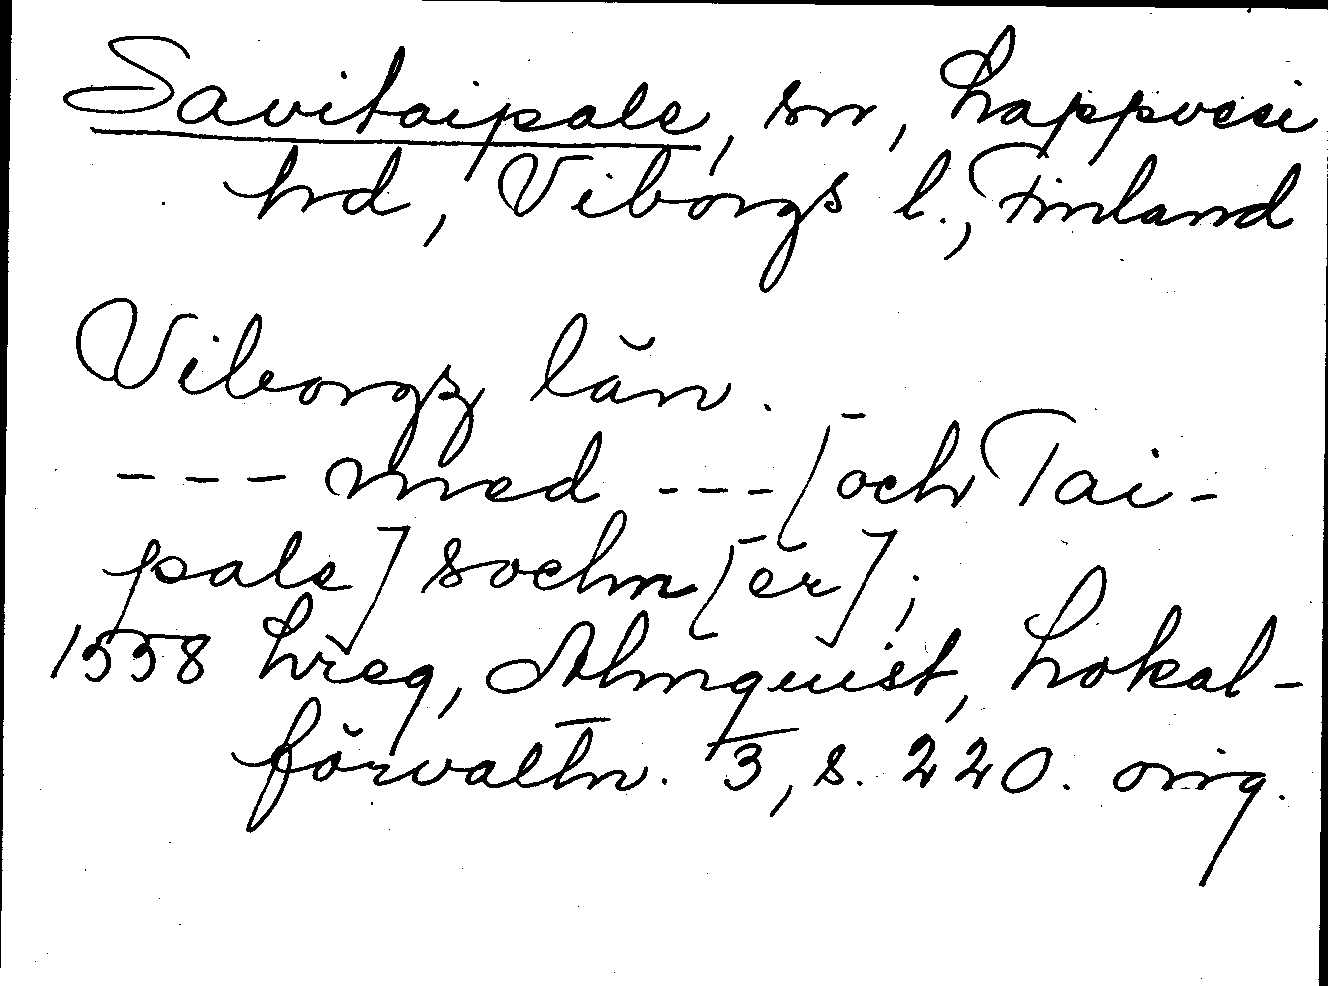 Savitaipale, sn, Lappvesi
hd, Viborgs l., Finland
Viborgz län.
--- med --- [och Tai-
pale] sochn [er];
1558 Lreg, Almquist, Lokal-
förvaltn. 3, s. 220. orig.